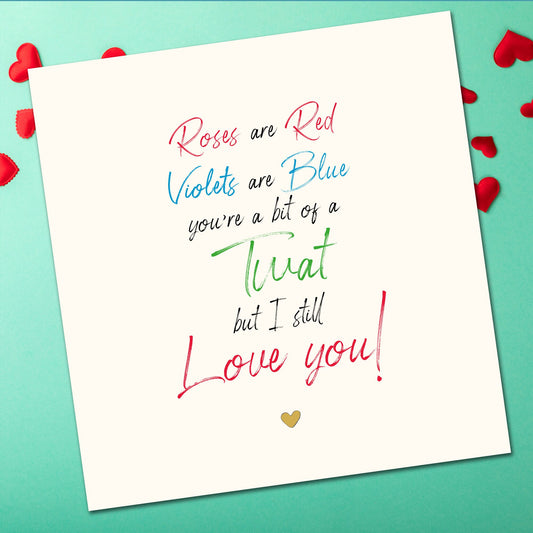 Roses are Red
Violets are Blue
you're a bit of a
Twat
but I still
Love you!